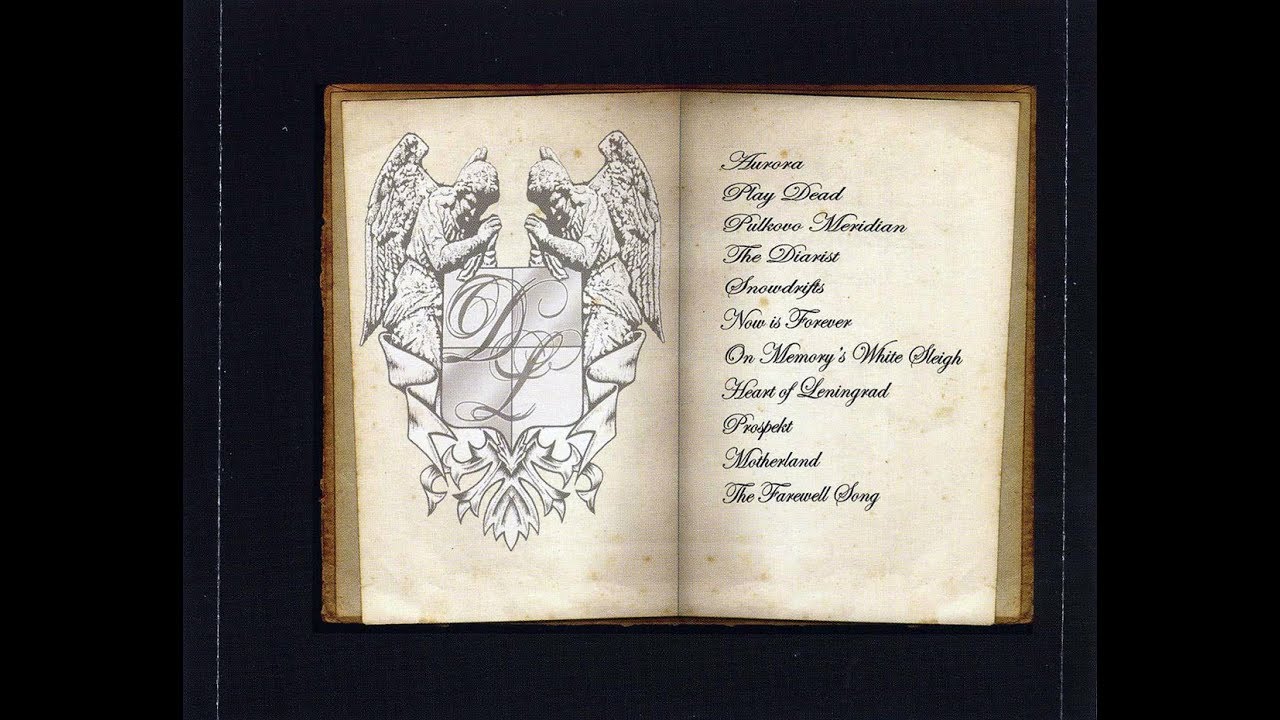 DL
Aurora
Play Dead
Pulkovo Meridian
The Diarist
Snowdrifts
Now is Forever
On Memory's White Sleigh
Heart of Leningrad
Prospekt
Motherland
The Farewell Song